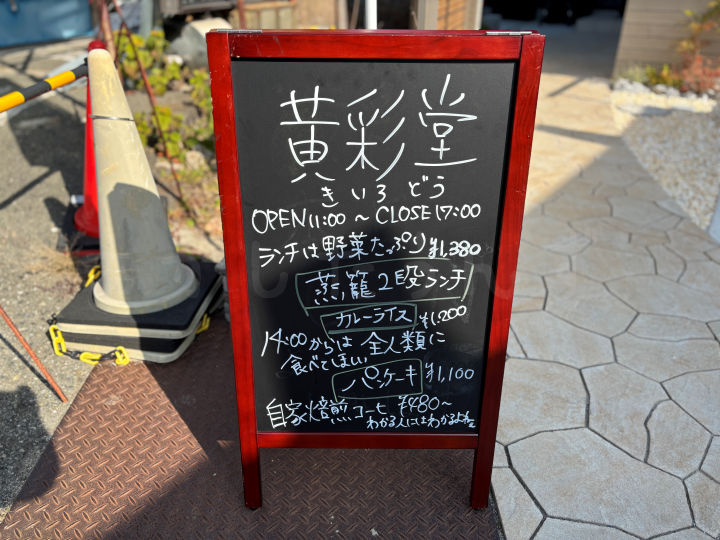 黄彩堂
きいろどう
OPEN 11:00 ~ CLOSE 17:00
ランチは野菜たっぷり ¥1,380
蒸籠2段ランチ
カレーライス ¥1,200
14:00からは全人類に
食べてほしい
パンケーキ ¥1,100
自家焙煎コーヒー ¥480~
わかる人にはわかるよね